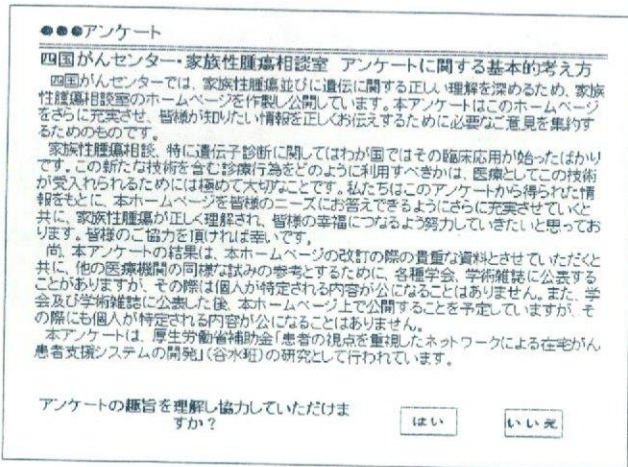 ●●●アンケート
四国がんセンター・家族性腫瘍相談室 アンケートに関する基本的考え方
四国がんセンターでは、家族性腫瘍並びに遺伝に関する正しい理解を深めるため、家族
性腫瘍相談室のホームページを作製し公開しています。本アンケートはこのホームページ
をさらに充実させ、皆様が知りたい情報を正しくお伝えするために必要なご意見を集約す
るためのものです。
家族性腫瘍相談、特に遺伝子診断に関してはわが国ではその臨床応用が始ったばかり
です。この新たな技術を含む診療行為をどのように利用すべきかは、医療としてこの技術
が受入れられるためには極めて大切なことです。私たちはこのアンケートから得られた情
報をもとに、本ホームページを皆様のニーズにお答えできるようにさらに充実させていくと
共に、家族性腫瘍が正しく理解され、皆様の幸福につなるよう努力していきたいと思ってお
ります。皆様のご協力を頂ければ幸いです。
尚、本アンケートの結果は、本ホームページの改訂の際の貴重な資料とさせていただくと
共に、他の医療機関の同様な試みの参考とするために、各種学会、学術雑誌に公表する
ことがありますが、その際は個人が特定される内容が公になることはありません。また、学
会及び学術雑誌に公表した後、本ホームページ上で公開することを予定していますが、そ
の際にも個人が特定される内容が公になることはありません。
本アンケートは、厚生労働省補助金「患者の視点を重視したネットワークによる在宅がん
患者支援システムの開発」(谷水班)の研究として行われています。
アンケートの趣旨を理解し協力していただけま
すか?
はい
いいえ